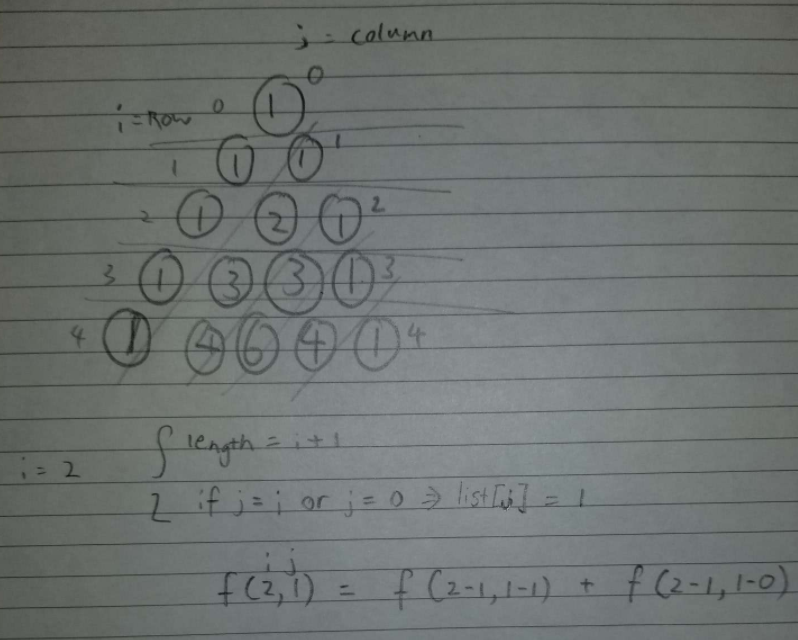 j = column
i = Row 0 1 0
1 1 1 1
2 1 2 1 2
3 1 3 3 1 3
4 1 4 6 4 1 4
length = i + 1
i = 2
if j = i or j = 0 ⇒ list[j] = 1
i j
f(2,1) = f(2-1, 1-1) + f(2-1, 1-0)